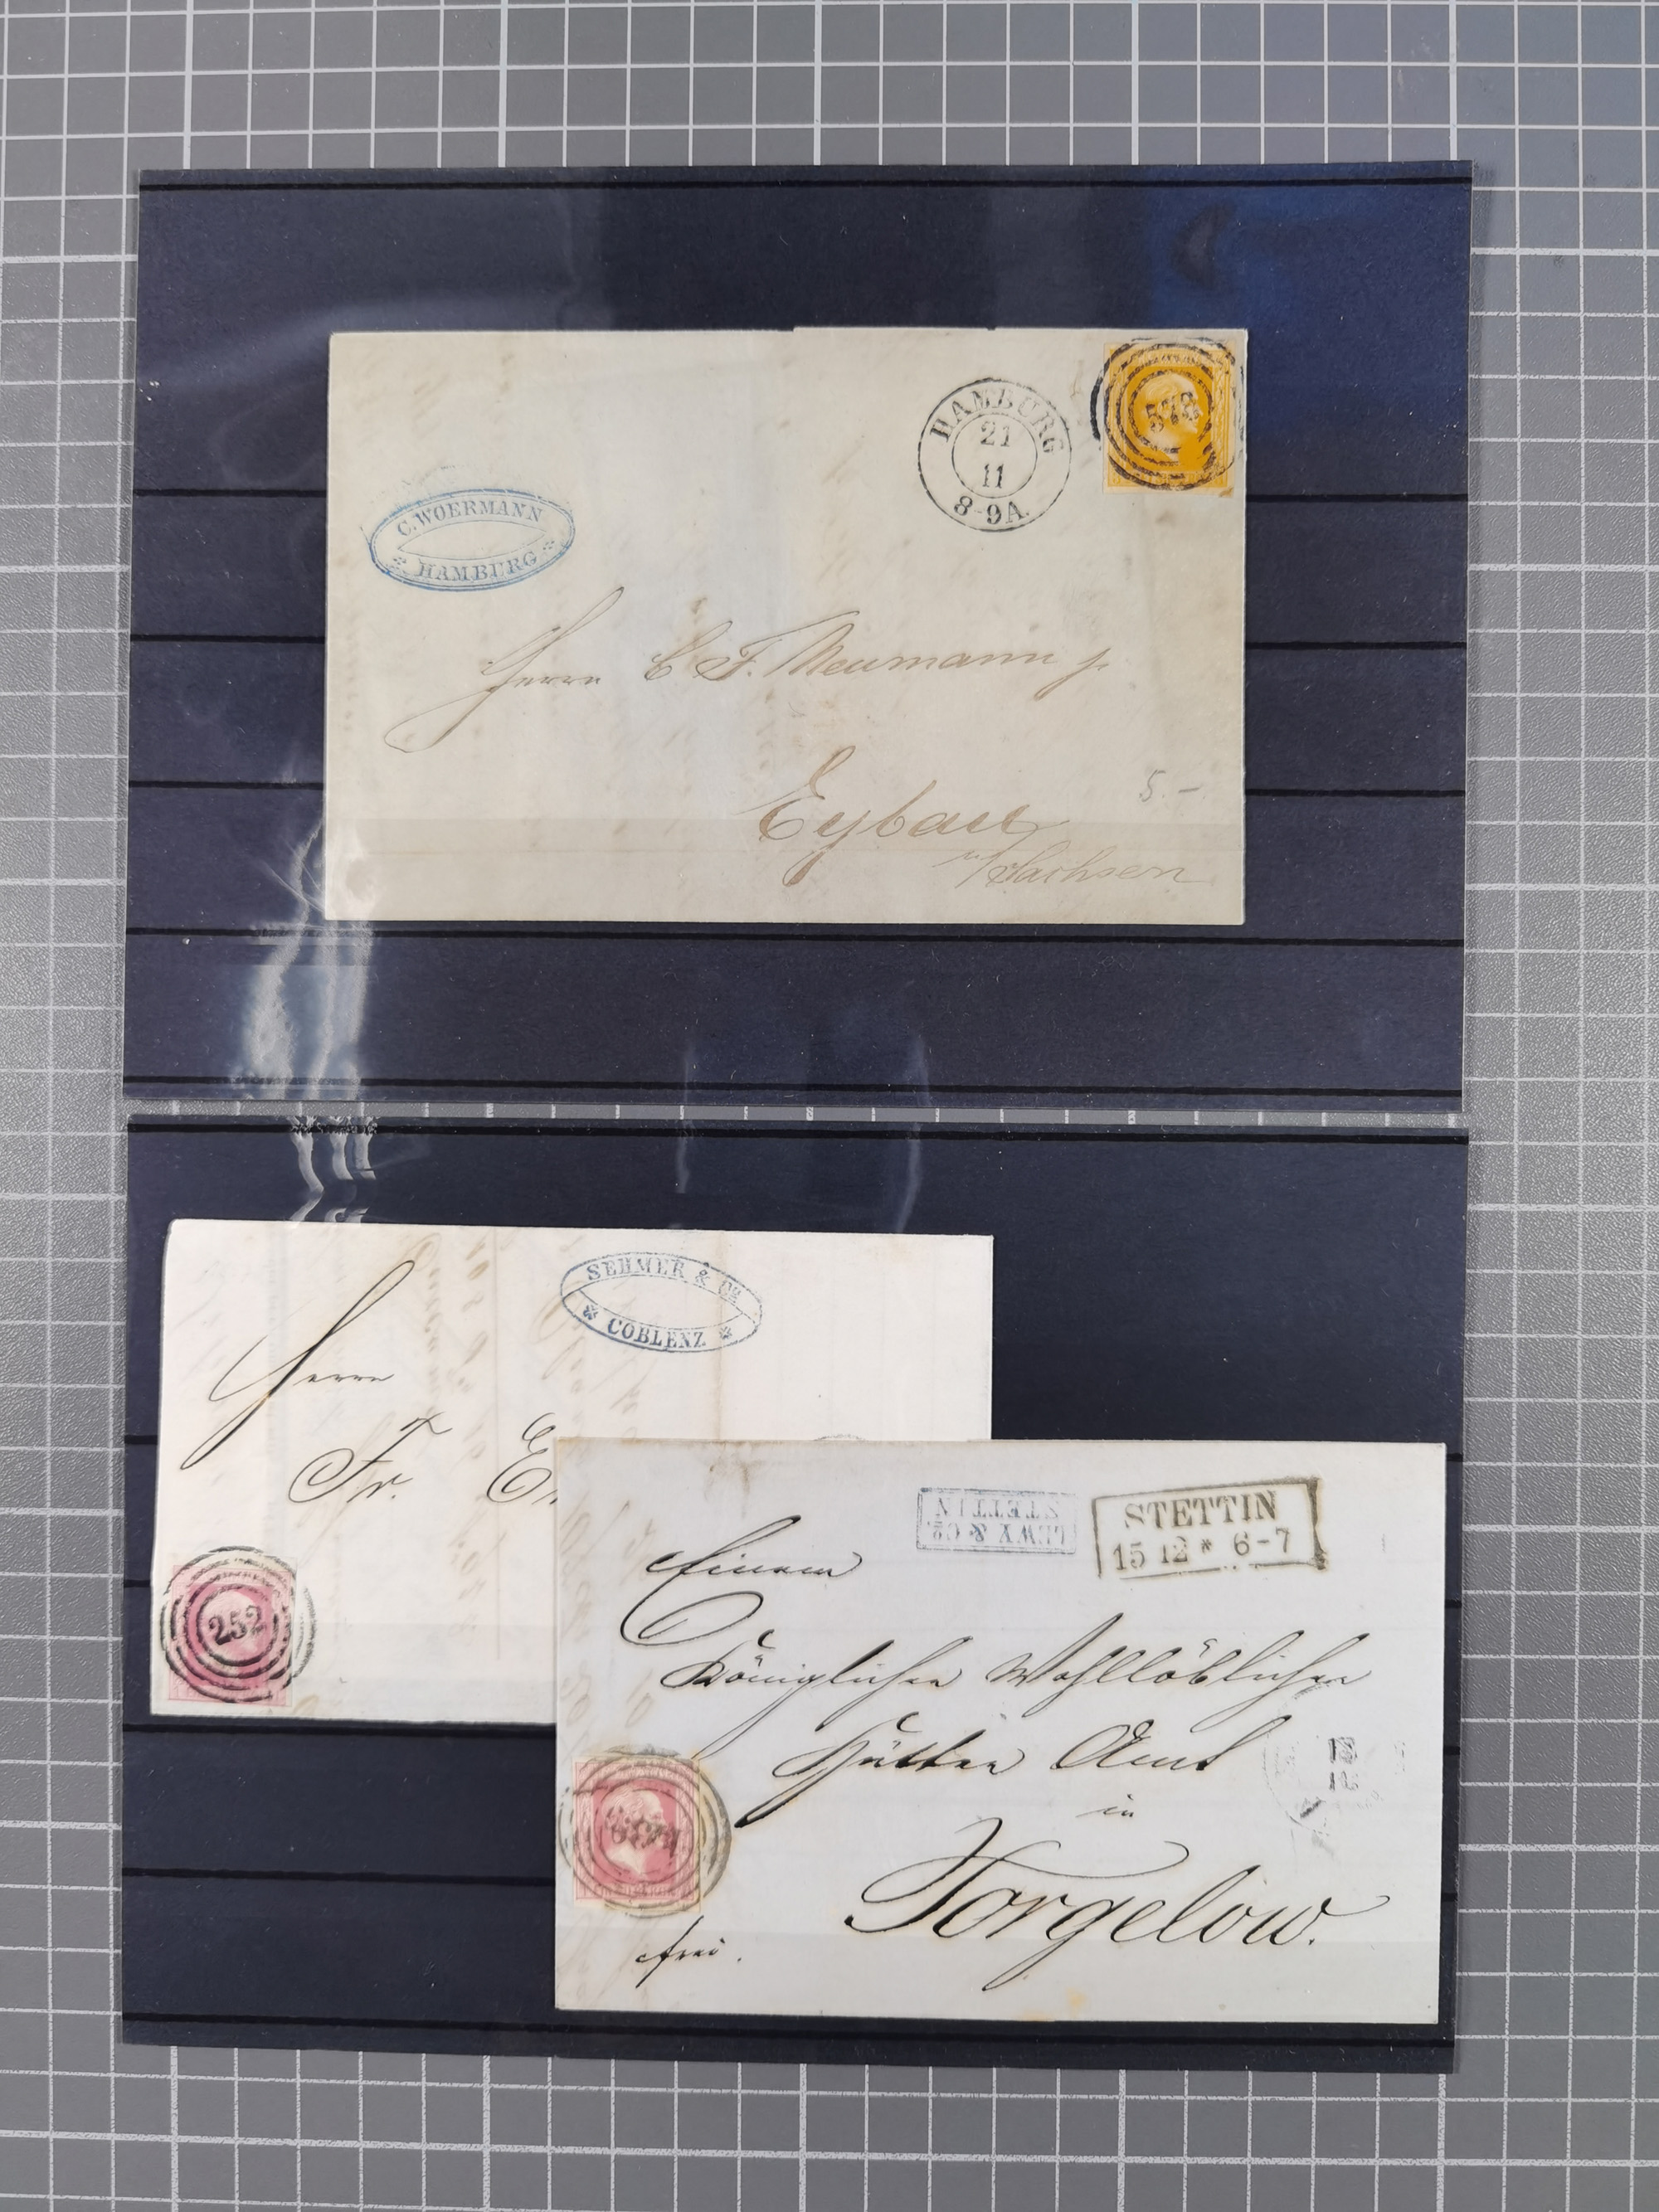 HAMBURG
21
11
8-9A.
578
C. WOERMANN
HAMBURG
Herrn C F. Neumann jr
Eybau
5.-
i/Sachsen
SEHMER & Co.
COBLENZ
Herrn
Fr.
252
STETTIN
LEWY & Co.
STETTIN
15 12 * 6-7
Einem
Königlichen Wohllöblichen
Hütten Amt
in
Torgelow.
frei.